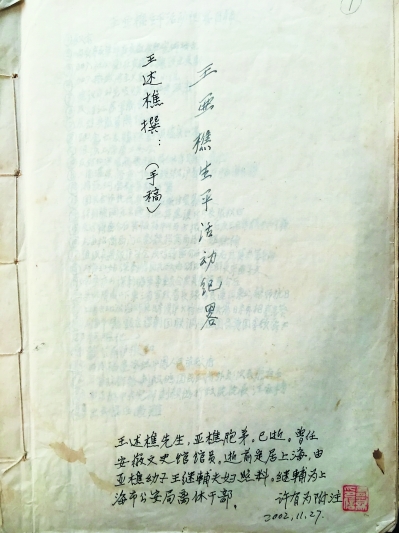 王亚樵生平活动纪畧
王述樵撰：（手稿）
王述樵先生，亚樵胞弟。已逝。曾任
安徽文史馆馆员。逝前来居上海，由
亚樵幼子王继辅夫妇照料。继辅为上
海市公安局离休干部。
许有为附注
2002.11.27.